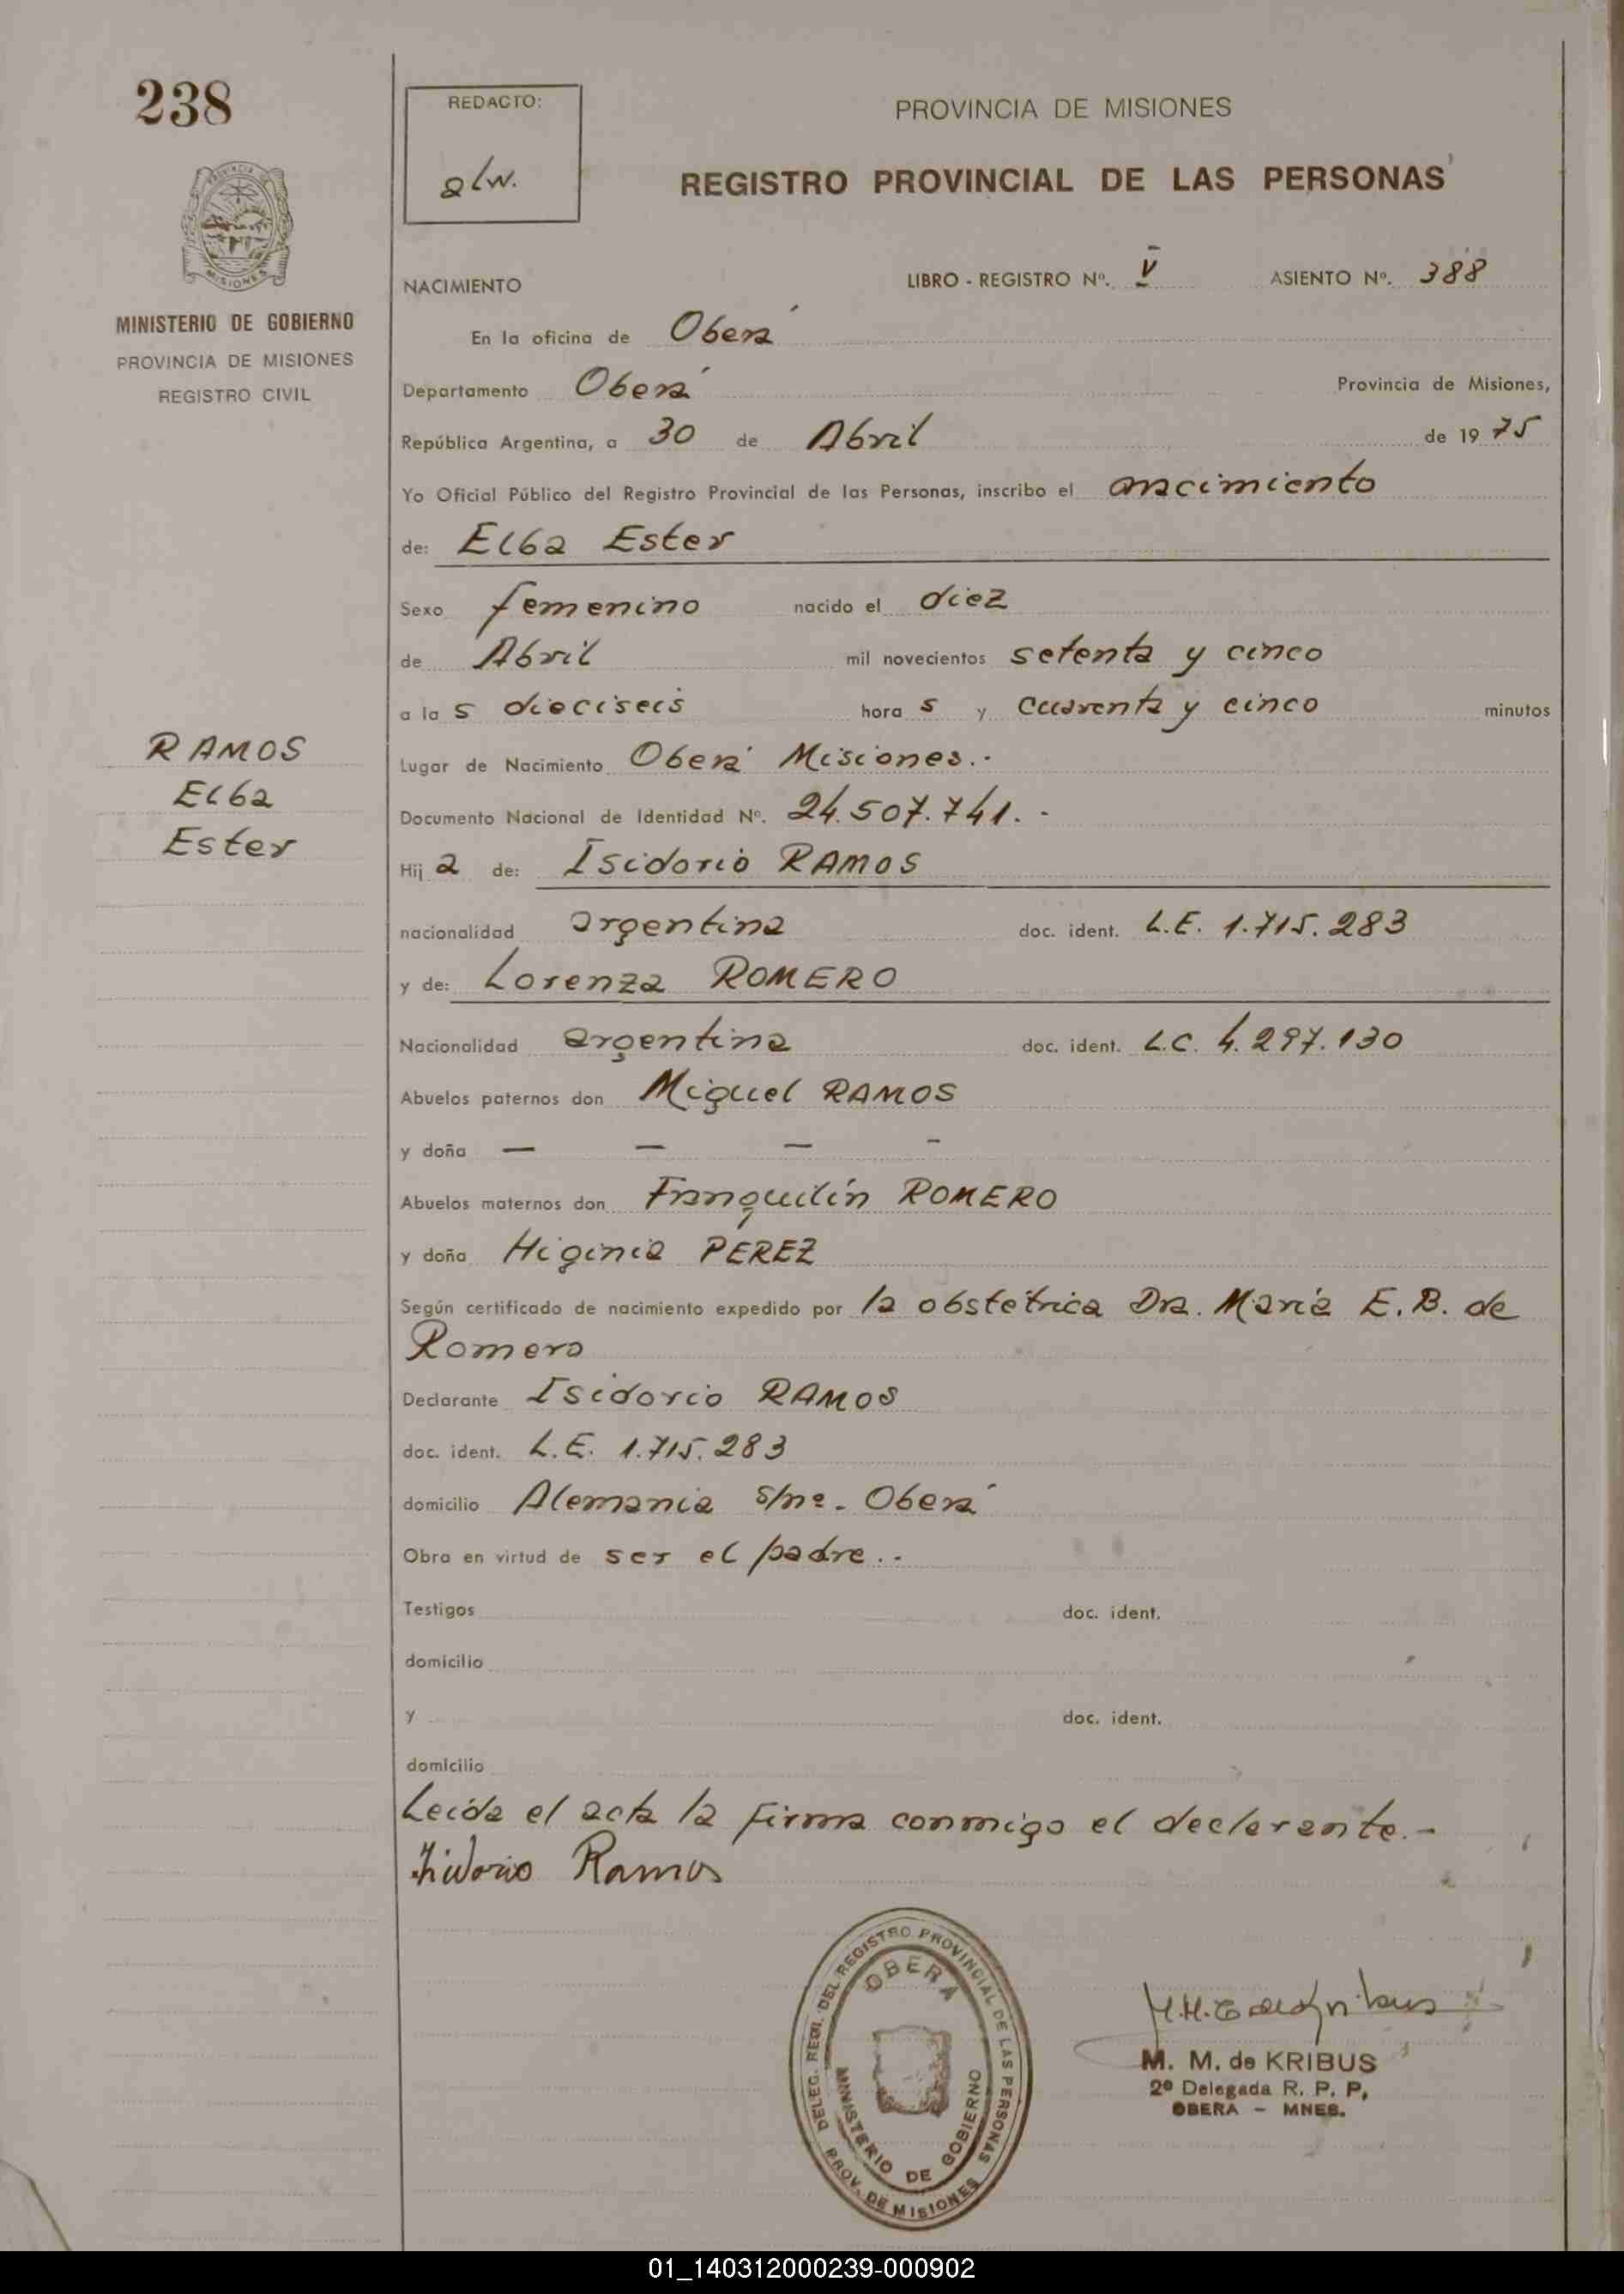 238
MINISTERIO DE GOBIERNO
PROVINCIA DE MISIONES
REGISTRO CIVIL
RAMOS
Elba
Ester
REDACTO:
PROVINCIA DE MISIONES
REGISTRO PROVINCIAL DE LAS PERSONAS
NACIMIENTO LIBRO - REGISTRO Nº. V ASIENTO Nº. 388
En la oficina de Oberá
Departamento Oberá Provincia de Misiones,
República Argentina, a 30 de Abril de 1975
Yo Oficial Público del Registro Provincial de las Personas, inscribo el nacimiento
de: Elba Ester
Sexo femenino nacido el diez
de Abril mil novecientos setenta y cinco
a las dieciseis horas y cuarenta y cinco minutos
Lugar de Nacimiento Oberá Misiones.-
Documento Nacional de Identidad Nº. 24.507.741.-
Hija de: Isidorio RAMOS
nacionalidad argentina doc. ident. L.E. 1.715.283
y de: Lorenza ROMERO
Nacionalidad argentina doc. ident. L.C. 4.297.130
Abuelos paternos don Miguel RAMOS
y doña — — — -
Abuelos maternos don Franquilín ROMERO
y doña Higinia PEREZ
Según certificado de nacimiento expedido por la obstétrica Dra. María E. B. de
Romero
Declarante Isidorio RAMOS
doc. ident. L.E. 1.715.283
domicilio Alemania s/nº. Oberá
Obra en virtud de ser el padre..
Testigos doc. ident.
domicilio
y doc. ident.
domicilio
Leída el acta la firma conmigo el declarante.-
Isidorio Ramos
DELEG. REGL. DEL REGISTRO PROVINCIAL DE LAS PERSONAS
OBERA
MINISTERIO DE GOBIERNO
PROV. DE MISIONES
M. M. de KRIBUS
2º Delegada R. P. P.
OBERA - MNES.
01_140312000239-000902